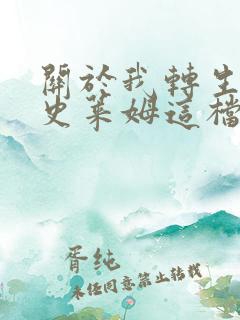 關於我轉生
史萊姆這檔
胥純
未经同意禁止转载